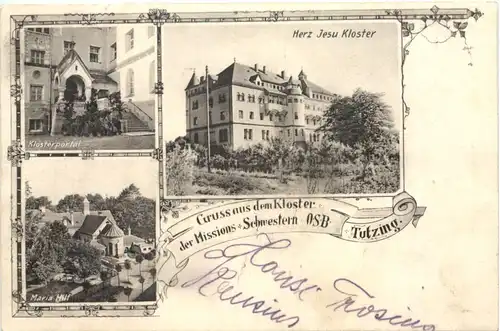 Herz Jesu Kloster
Klosterportal
Maria Hilf
Gruss aus dem Kloster
der Missions-Schwestern OSB
Tutzing.